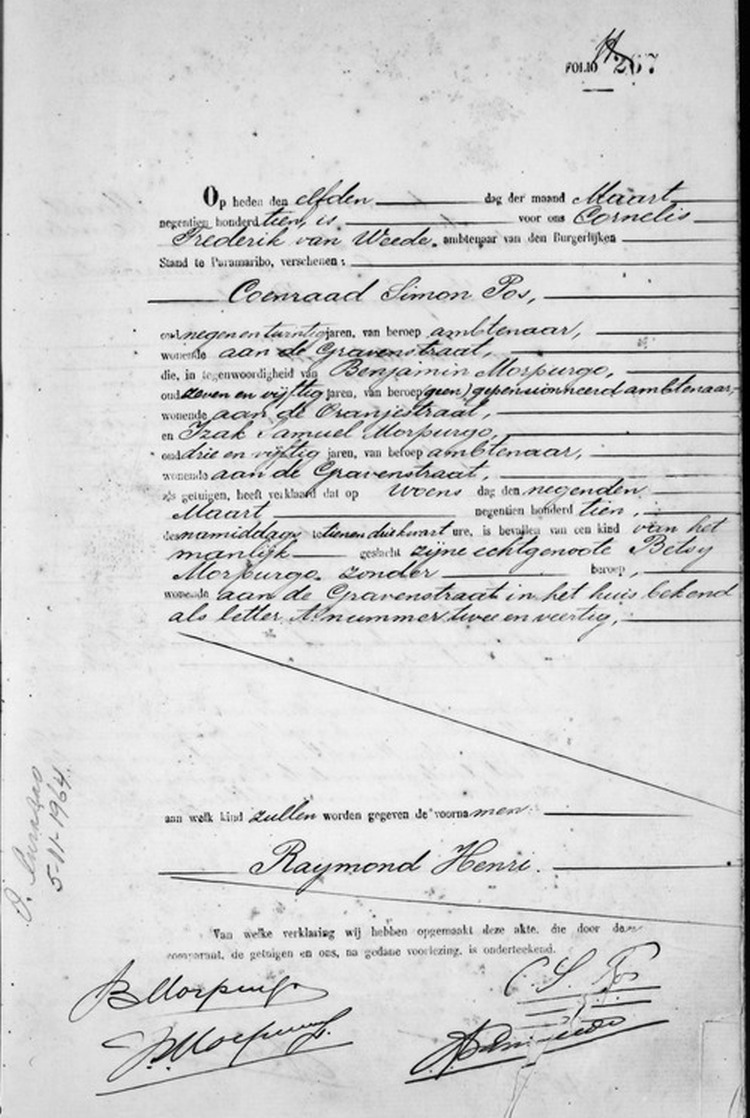 FOLIO 267
Op heden den elfden dag der maand Maart
negentien honderd tien, is voor ons Cornelis
Frederik van Weede, ambtenaar van den Burgerlijken
Stand te Paramaribo, verschenen:
Coenraad Simon Pos,
oud negen en twintig jaren, van beroep ambtenaar,
wonende aan de Gravenstraat,
die, in tegenwoordigheid van Benjamin Morpurgo,
oud zeven en vijftig jaren, van beroep (geen) gepensionneerd ambtenaar,
wonende aan de Oranjestraat,
en Izak Samuel Morpurgo,
oud drie en vijftig jaren, van beroep ambtenaar,
wonende aan de Gravenstraat,
als getuigen, heeft verklaard dat op Woens dag den negenden
Maart negentien honderd tien,
des namiddags te tien en driekwart ure, is bevallen van een kind van het
manlijk geslacht zijne echtgenoote Betsy
Morpurgo, zonder beroep,
wonende aan de Gravenstraat in het huis bekend
als letter A nummer twee en veertig,
aan welk kind zullen worden gegeven de voornamen
Raymond Henri.
Van welke verklaring wij hebben opgemaakt deze akte, die door den
comparant, de getuigen en ons, na gedane voorlezing, is onderteekend.
BMorpurgo
C. S. Pos
Morpurgo
O. Curaçao
5-11-1964.